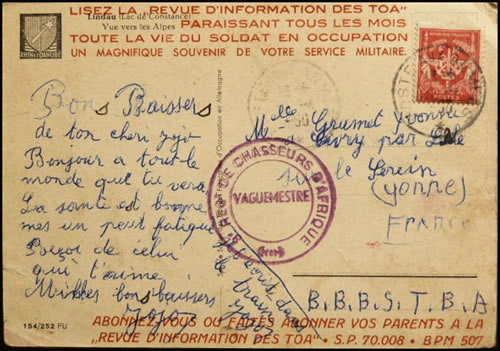 LISEZ LA „REVUE D'INFORMATION DES TOA"
PARAISSANT TOUS LES MOIS
TOUTE LA VIE DU SOLDAT EN OCCUPATION
UN MAGNIFIQUE SOUVENIR DE VOTRE SERVICE MILITAIRE.
Lindau (Lac de Constance)
Vue vers les Alpes
RHIN ET DANUBE
Bons Baisers
de ton cheri Jojo
Bonjour a tout le
monde que tu vera
La santé est bonne
mes un peut fatigué
Reçoi de celui
qui t'aime
Milles bons baisers
Jojo
d'Occupation en Allemagne
Melle Grumet Yvonne
Civry par
sur le Serein
(Yonne)
FRANCE
CHASSEURS D'AFRIQUE
VAGUEMESTRE
B.B.B.S.T.B.A
154/252 FU
ABONNEZ-VOUS OU FAITES ABONNER VOS PARENTS A LA
„REVUE D'INFORMATION DES TOA" • S.P. 70.008 - BPM 507